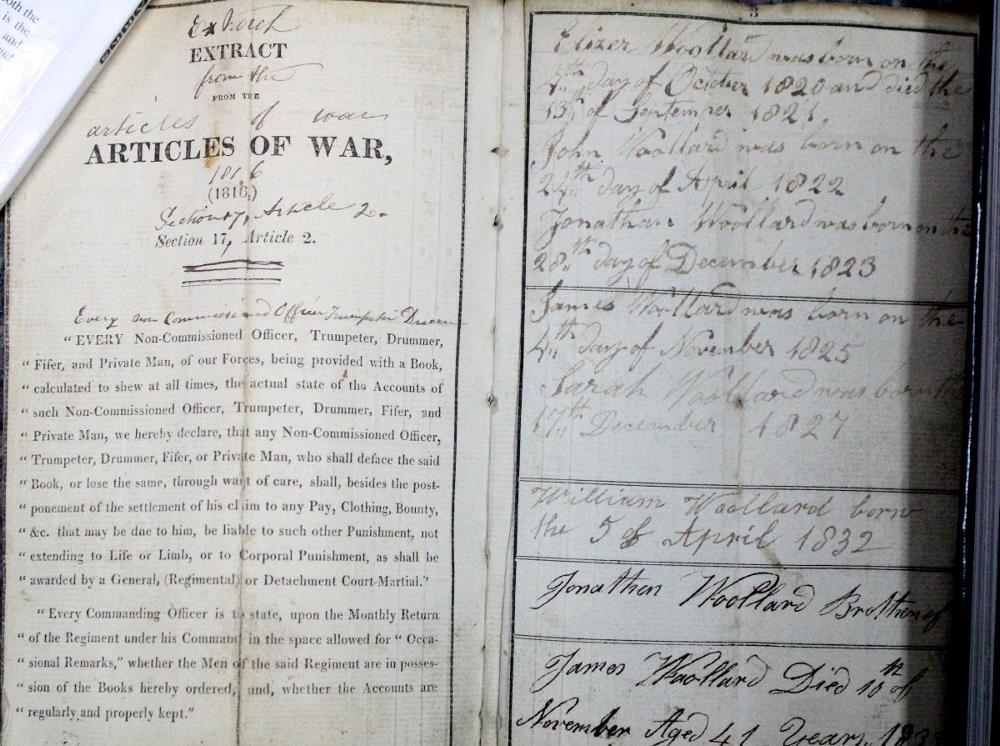 oth the
is the
and
Extract
EXTRACT
from the
FROM THE
articles of war
ARTICLES OF WAR,
1816
(1816,)
Section 17, Article 2.
Section 17, Article 2.
Every non Commissioned Officer Trumpeter
"EVERY Non-Commissioned Officer, Trumpeter, Drummer,
" Fifer, and Private Man, of our Forces, being provided with a Book,
" calculated to shew at all times, the actual state of the Accounts of
" such Non-Commissioned Officer, Trumpeter, Drummer, Fifer, and
" Private Man, we hereby declare, that any Non-Commissioned Officer,
" Trumpeter, Drummer, Fifer, or Private Man, who shall deface the said
" Book, or lose the same, through want of care, shall, besides the post-
" ponement of the settlement of his claim to any Pay, Clothing, Bounty,
" &c. that may be due to him, be liable to such other Punishment, not
" extending to Life or Limb, or to Corporal Punishment, as shall be
" awarded by a General, (Regimental) or Detachment Court-Martial."
"Every Commanding Officer is to state, upon the Monthly Return
" of the Regiment under his Command in the space allowed for " Occa-
" sional Remarks," whether the Men of the said Regiment are in posses-
" sion of the Books hereby ordered, and, whether the Accounts are
" regularly and properly kept."
3
Elizer Woollard was born on the
4th day of October 1820 and died the
13th of Septemper 1821
John Woollard was born on the
24th day of April 1822
Jonathan Woollard was born on the
28th day of December 1823
James Woollard was born on the
4th day of November 1825
Sarah Woollard was born the
17th December 1827
William Woollard born
the 5 of April 1832
Jonathan Woollard Brother of
James Woollard Died 10th of
November Aged 41 Years,